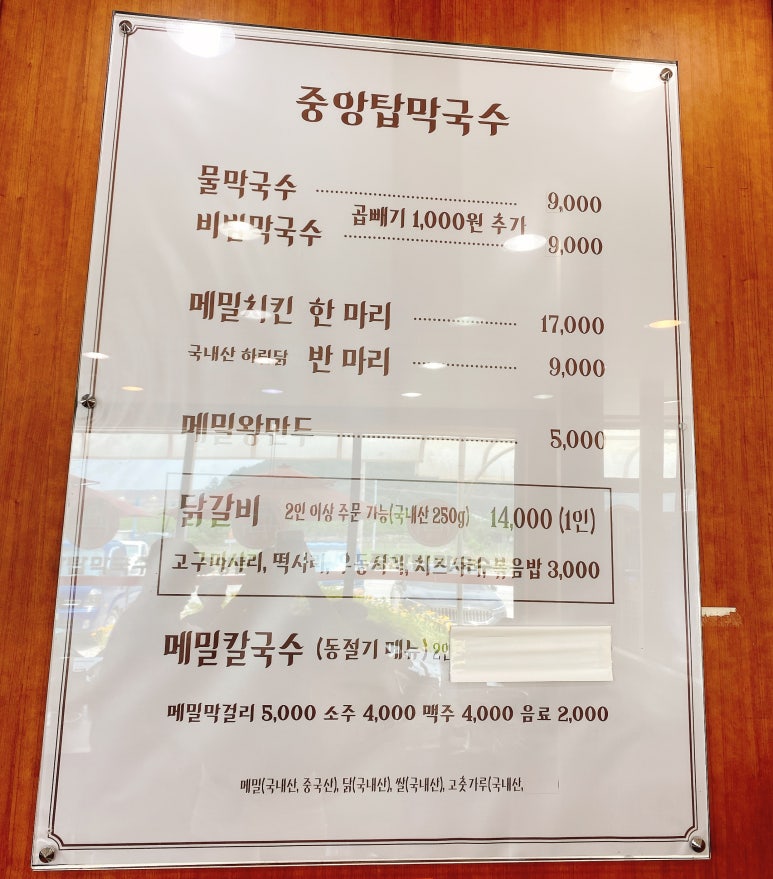 중앙탑막국수
물막국수 9,000
곱빼기 1,000원 추가
비빔막국수 9,000
메밀치킨 한 마리 17,000
국내산 하림닭 반 마리 9,000
메밀왕만두 5,000
닭갈비 2인 이상 주문 가능(국내산 250g) 14,000 (1인)
고구마사리, 떡사리, 우동사리, 치즈사리, 볶음밥 3,000
메밀칼국수 (동절기 메뉴) 2인
메밀막걸리 5,000 소주 4,000 맥주 4,000 음료 2,000
메밀(국내산, 중국산), 닭(국내산), 쌀(국내산), 고춧가루(국내산,